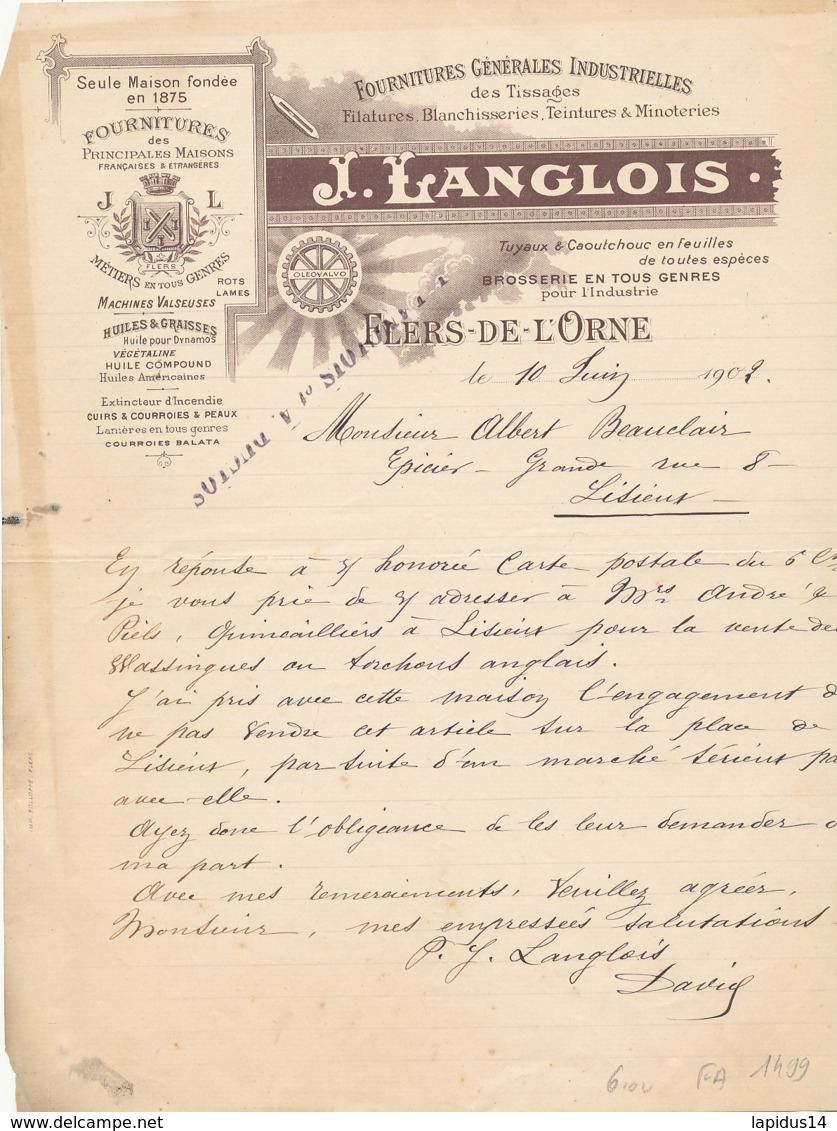 Seule Maison fondée
en 1875
FOURNITURES
des
PRINCIPALES MAISONS
FRANÇAISES & ETRANGÈRES
J L
FLERS
MÉTIERS EN TOUS GENRES
ROTS
LAMES
MACHINES VALSEUSES
HUILES & GRAISSES
Huile pour Dynamos
VÉGÉTALINE
HUILE COMPOUND
Huiles Américaines
Extincteur d'Incendie
CUIRS & COURROIES & PEAUX
Lanières en tous genres
COURROIES BALATA
FOURNITURES GÉNÉRALES INDUSTRIELLES
des Tissages
Filatures, Blanchisseries, Teintures & Minoteries
J. LANGLOIS
OLEOVALVO
Tuyaux & Caoutchouc en feuilles
de toutes espèces
BROSSERIE EN TOUS GENRES
pour l'Industrie
FLERS-DE-L'ORNE
le 10 Juin 1902.
Monsieur Albert Beauclair
Epicier - Grande rue 8 -
Lisieux -
En réponse à v/ honorée Carte postale du 6 Ct
je vous prie de v/ adresser à Mrs André &
Piels, Quincailliers à Lisieux pour la vente de
Wassingues ou torchons anglais.
J'ai pris avec cette maison l'engagement d
ne pas vendre cet article sur la place de
Lisieux, par suite d'un marché sérieux pa
avec elle.
Ayez donc l'obligeance de les leur demander d
ma part.
Avec mes remerciements, Veuillez agréer,
Monsieur, mes empressées salutations
P. J. Langlois
David
FA 1499
lapidus14